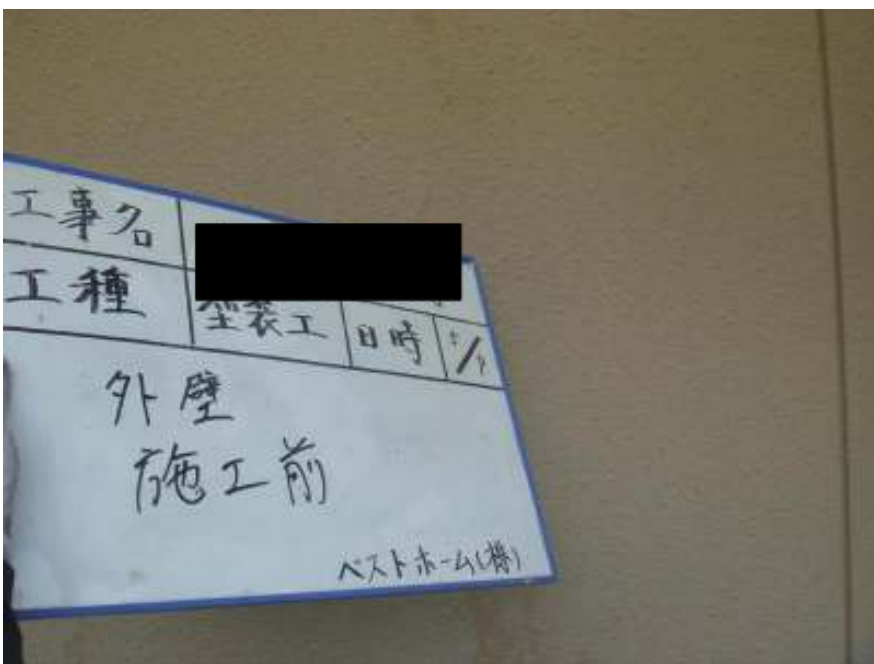 工事名
工種 塗装工 日時
外壁
施工前
ベストホーム(株)